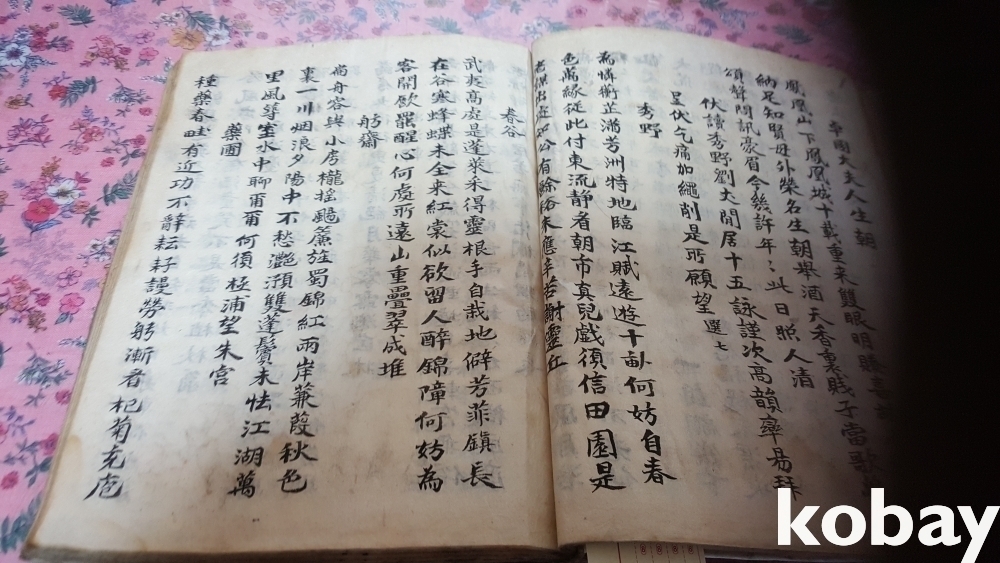 幸國大夫人生朝
鳳凰山下鳳凰城十載重來雙眼明賸
納足知賢母外榮名生朝舉酒天香裏賤子當歌
頌聲問訊㡛眉今幾許年〻此日照人清
伏讀秀野劉丈閒居十五詠謹次高韻率易
呈伏乞痛加繩削是所願望 選七
秀野
為憐蘅芷滿芳洲特地臨江賦遠遊十畝何妨自春
色萬緣從此付東流静者朝市真兒戲須信田園是
有餘 未應辛苦謝靈丘
春谷
武夷高處是蓬萊采得靈根手自栽地僻芳菲鎮長
在谷寒蜂蝶未全來紅裳似欲留人醉錦障何妨為
客開飲罷醒心何處所遠山重疊翠成堆
舫齋
尚舟容與小房櫳搖颺簾旌蜀錦紅兩岸蒹葭秋色
裏一川烟浪夕陽中不愁灩澦雙蓬鬢未怯江湖萬
里風等室水中聊爾爾何須極浦望朱宮
藥圃
種藥春畦有近功不辭耘耔謾勞躬漸看杞菊充庖
kobay